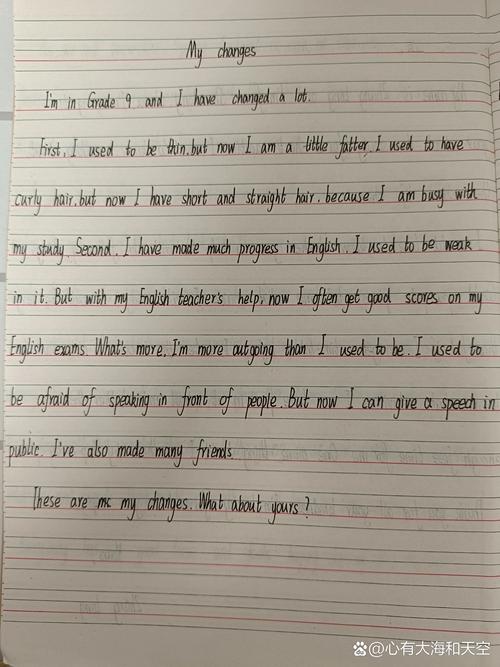 My changes
I'm in Grade 9 and I have changed a lot.
First, I used to be thin, but now I am a little fatter. I used to have
curly hair, but now I have short and straight hair, because I am busy with
my study. Second, I have made much progress in English. I used to be weak
in it. But with my English teacher's help, now I often get good scores on my
English exams. What's more, I'm more outgoing than I used to be. I used to
be afraid of speaking in front of people. But now I can give a speech in
public. I've also made many friends
These are my changes. What about yours?
心有大海和天空